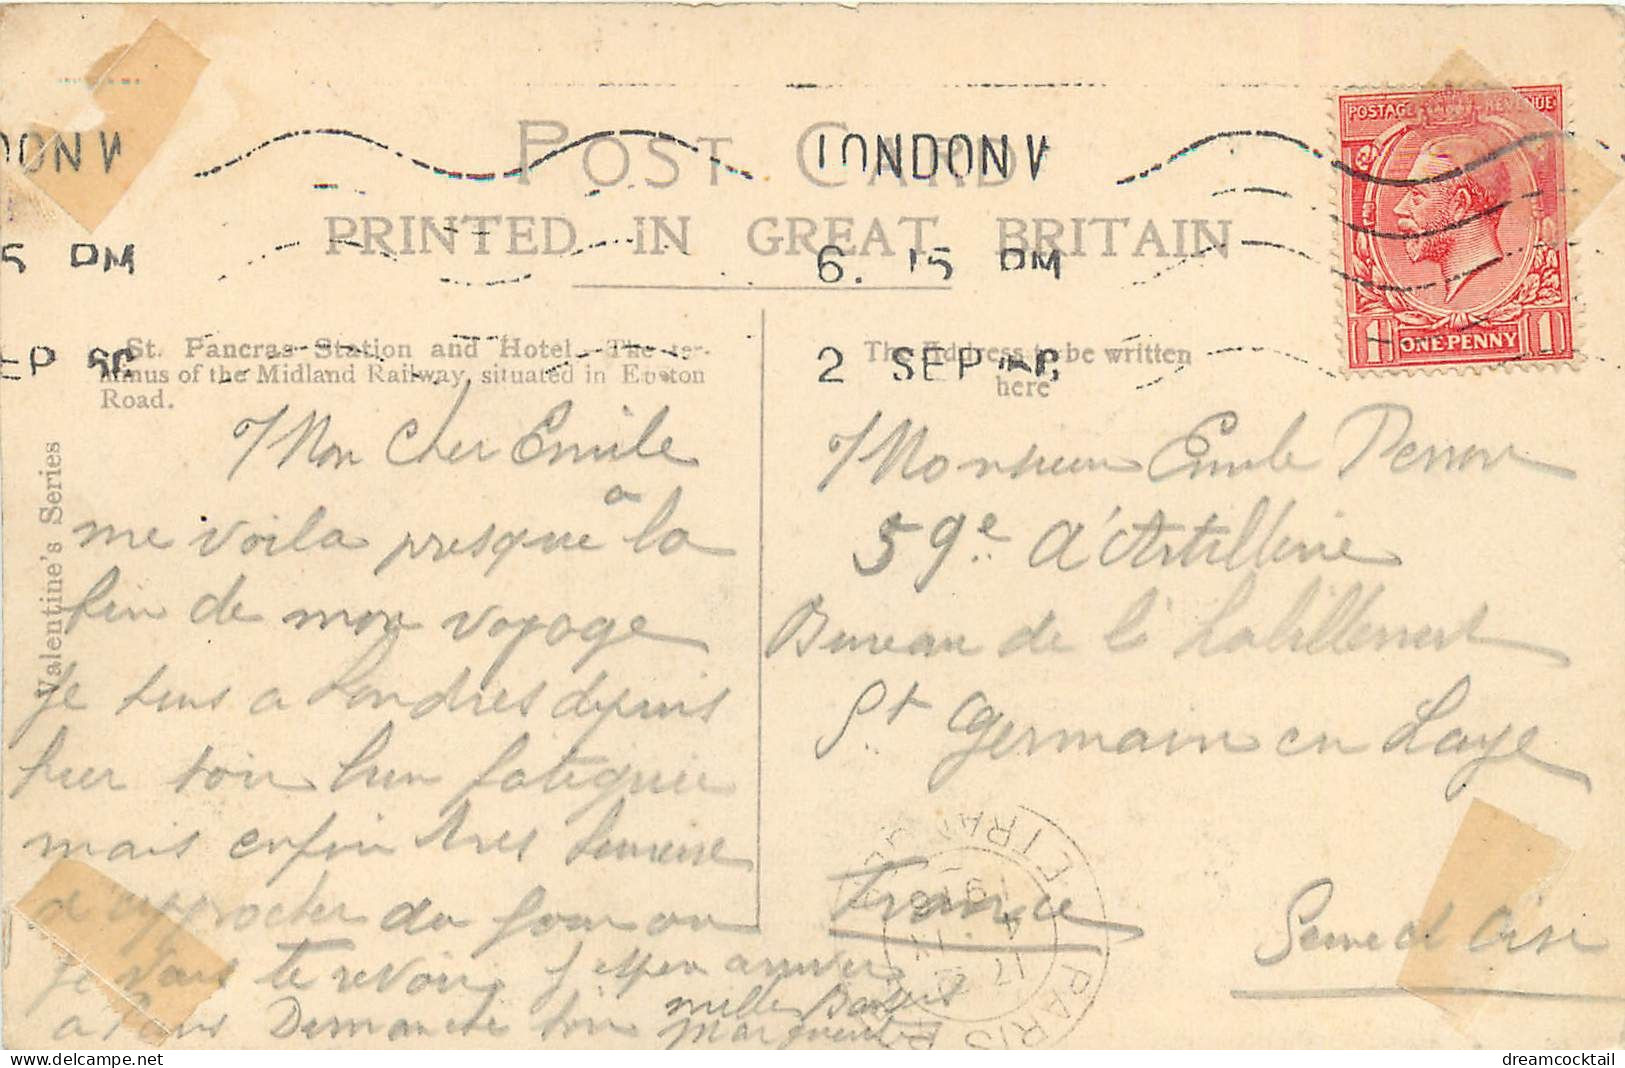 POST CARD
PRINTED IN GREAT BRITAIN
LONDON W
6. 15 PM
2 SEP
DON W
5 PM
EP
POSTAGE REVENUE
1 ONE·PENNY 1
St. Pancras Station and Hotel. The ter-
minus of the Midland Railway, situated in Euston
Road.
The Address to be written
here
Valentine's Series
Mon cher Emile
me voila presque à la
fin de mon voyage
Je suis a Londres depuis
hier soir bien fatiguée
mais enfin tres heureuse
d'approcher du jour ou
je vais te revoir, j'espere arriver
a Paris Dimanche soir
mille Baisers
Marguerite
Monsieur Emile
59e d'Artillerie
Bureau de l'habillement
St Germain en Laye
France
Seine et Oise
PARIS ETRANGER
dreamcocktail